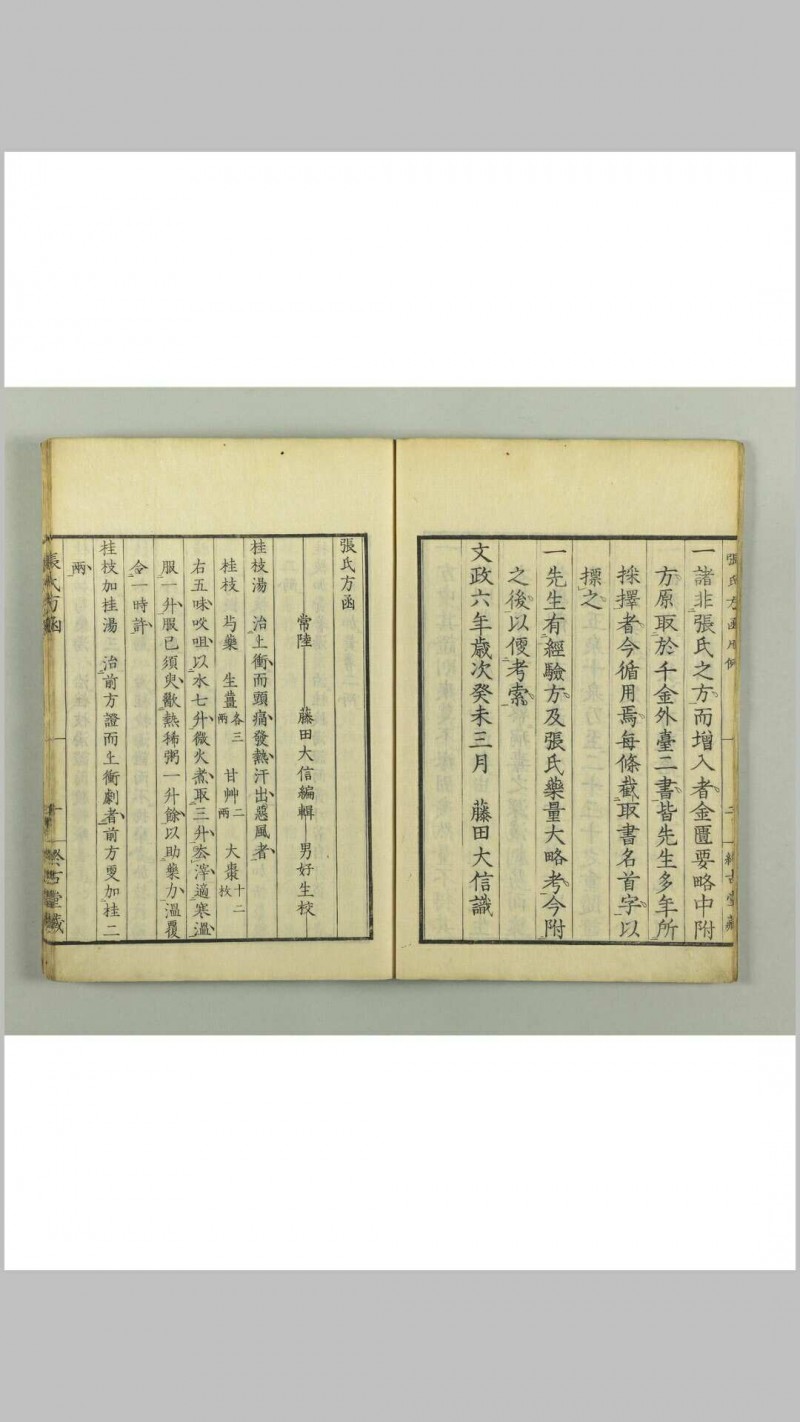 張氏方函凡例
一諸非張氏之方而增入者金匱要略中附
方原取於千金外臺二書皆先生多年所
採擇者今循用焉每條截取書名首字以
標之
一先生有經驗方及張氏藥量大略考今附
之後以便考索
文政六年歲次癸未三月　藤田大信識
張氏方函
常陸　藤田大信編輯　男好生校
桂枝湯　治上衝而頭痛發熱汗出惡風者
桂枝　芍藥　生薑各三兩　甘艸二兩　大棗十二枚
右五味㕮咀以水七升微火煮取三升去滓適寒溫
服一升服已須臾歠熱稀粥一升餘以助藥力溫覆
令一時許
桂枝加桂湯　治前方證而上衝劇者前方更加桂二
兩
張氏方函